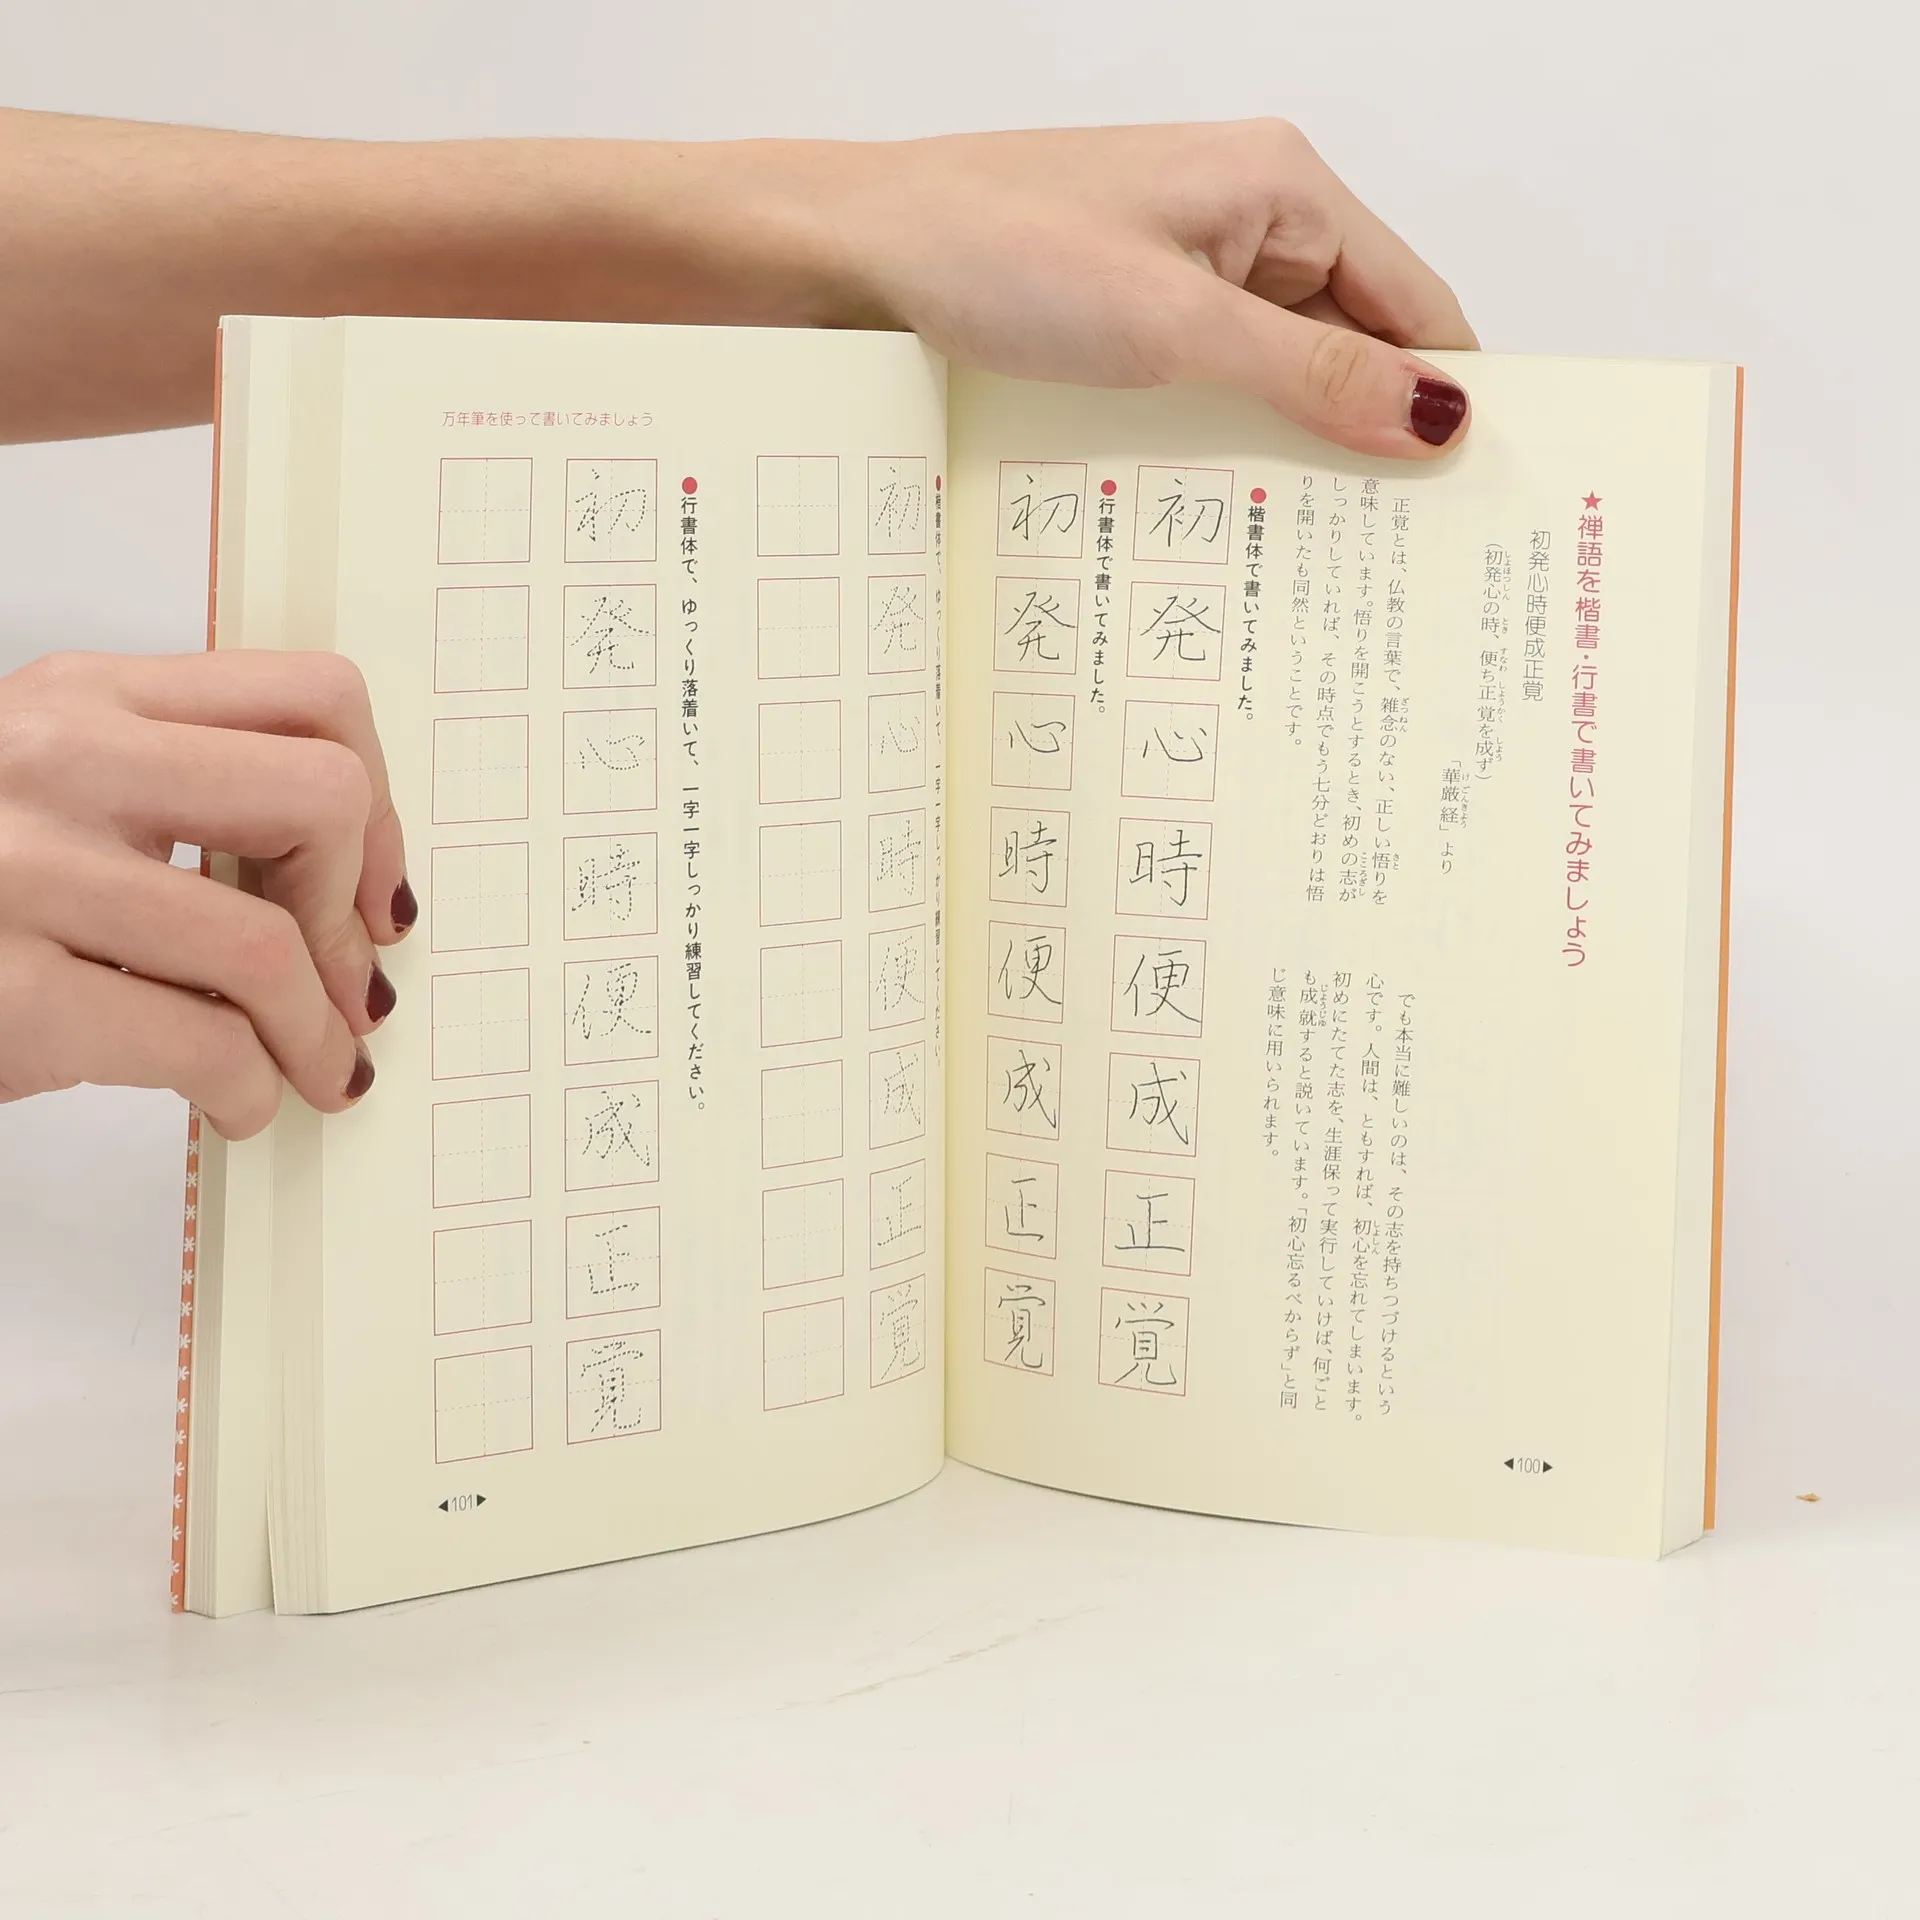 ★禅語を楷書・行書で書いてみましょう
初発心時便成正覚
（初発心の時、便ち正覚を成ず）
しょほつしん とき すなわ しょうかく しょう
「華厳経」より
けごんきょう
正覚とは、仏教の言葉で、雑念のない、正しい悟りを
ざつねん さと
意味しています。悟りを開こうとするとき、初めの志が
こころざし
しっかりしていれば、その時点でもう七分どおりは悟
りを開いたも同然ということです。
でも本当に難しいのは、その志を持ちつづけるという
心です。人間は、ともすれば、初心を忘れてしまいます。
しょしん
初めにたてた志を、生涯保って実行していけば、何ごと
も成就すると説いています。「初心忘るべからず」と同
じょうじゅ
じ意味に用いられます。
●楷書体で書いてみました。
初発心時便成正覚
●行書体で書いてみました。
初発心時便成正覚
◀100▶
●楷書体で、ゆっくり落着いて、一字一字しっかり練習してください。
初発心時便成正覚
●行書体で、ゆっくり落着いて、一字一字しっかり練習してください。
初発心時便成正覚
万年筆を使って書いてみましょう
◀101▶